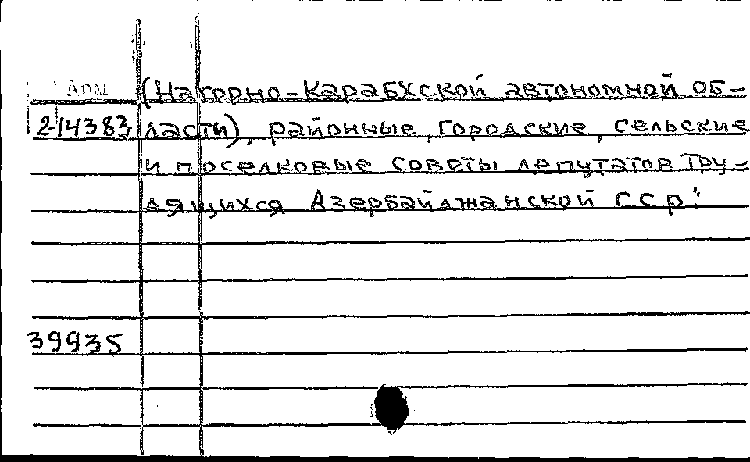 Арм (Нагорно-Карабхской автономной об-
2-14383 ласти), районные, городские, сельские
и поселковые советы депутатов тру-
дящихся Азербайджанской ССР"
39935